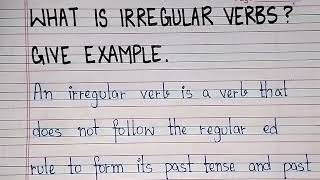 WHAT IS IRREGULAR VERBS?
GIVE EXAMPLE.
An irregular verb is a verb that
does not follow the regular ed
rule to form its past tense and past